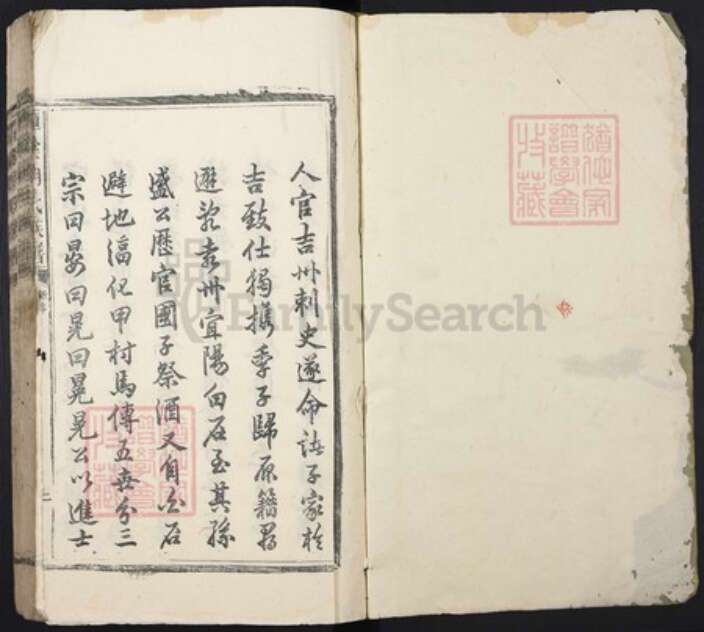 人官吉州刺史遂命諸子家於
吉致仕獨攜季子歸原籍尋
避亂袁州宜陽白石至其孫
盛公歷官國子祭酒又自白石
避地福化甲村馬傳五世分三
宗曰晏曰晃曰晃晃公以進士
FamilySearch